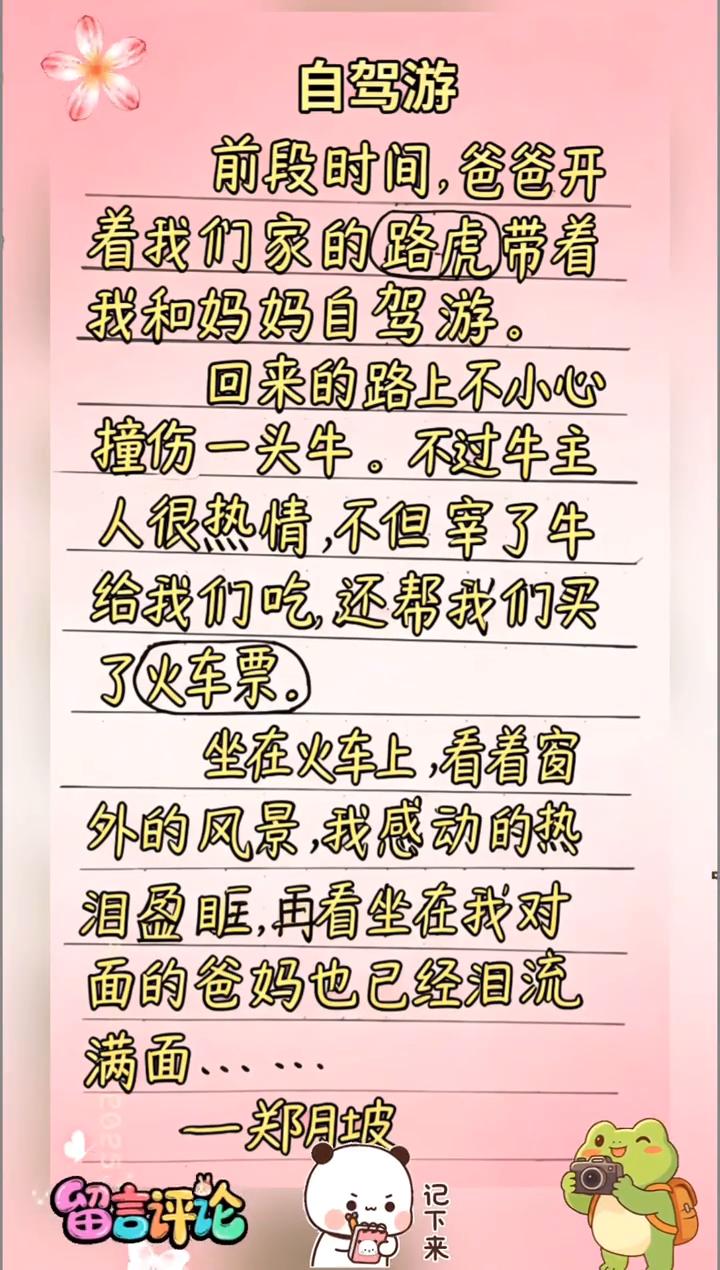 自驾游
前段时间,爸爸开
着我们家的路虎带着
我和妈妈自驾游。
回来的路上不小心
撞伤一头牛。不过牛主
人很热情,不但宰了牛
给我们吃,还帮我们买
了火车票。
坐在火车上,看着窗
外的风景,我感动的热
泪盈眶,再看坐在我对
面的爸妈也已经泪流
满面……
—郑月坡
留言评论
记下来